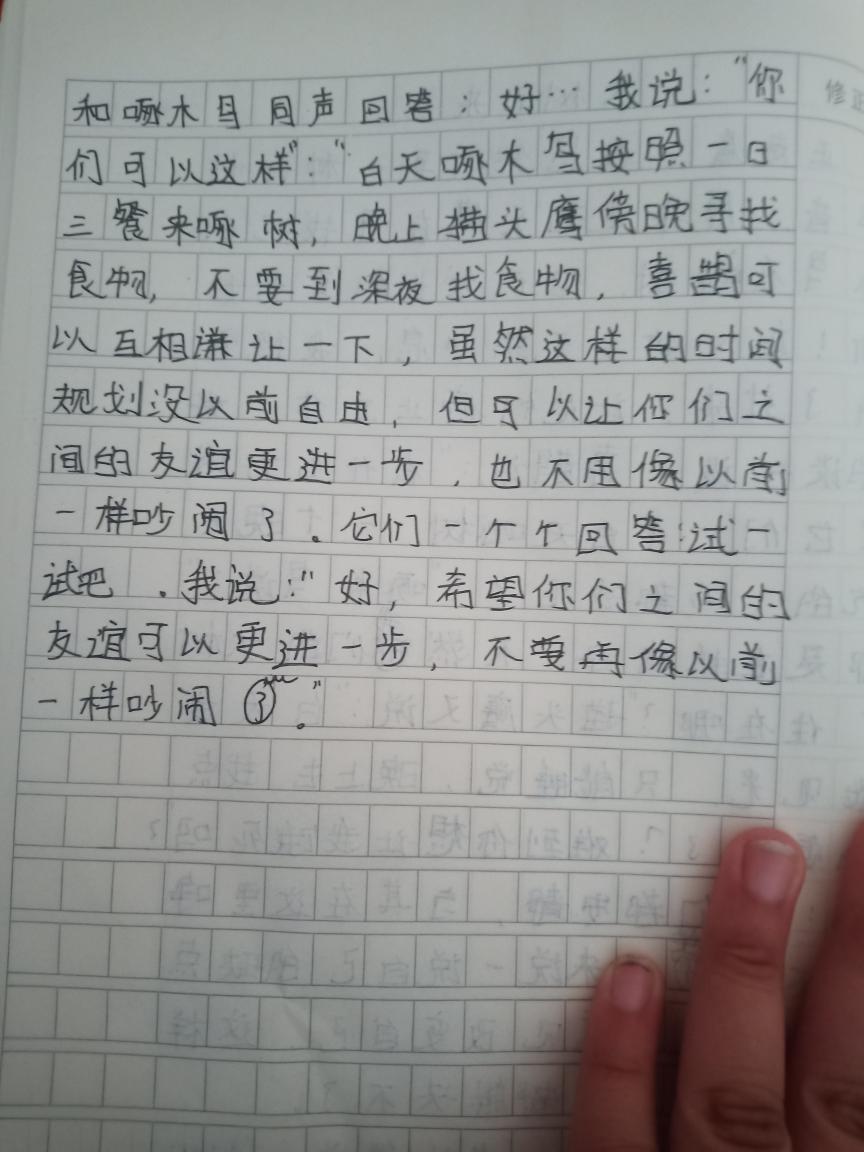 和啄木鸟同声回答：好…我说："你
们可以这样"："白天啄木鸟按照一日
三餐来啄树，晚上猫头鹰傍晚寻找
食物，不要到深夜找食物，喜鹊可
以互相谦让一下，虽然这样的时间
规划没以前自由，但可以让你们之
间的友谊更进一步，也不用像以前
一样吵闹了。它们一个个回答：试一
试吧。我说："好，希望你们之间的
友谊可以更进一步，不要再像以前
一样吵闹了。"
修正